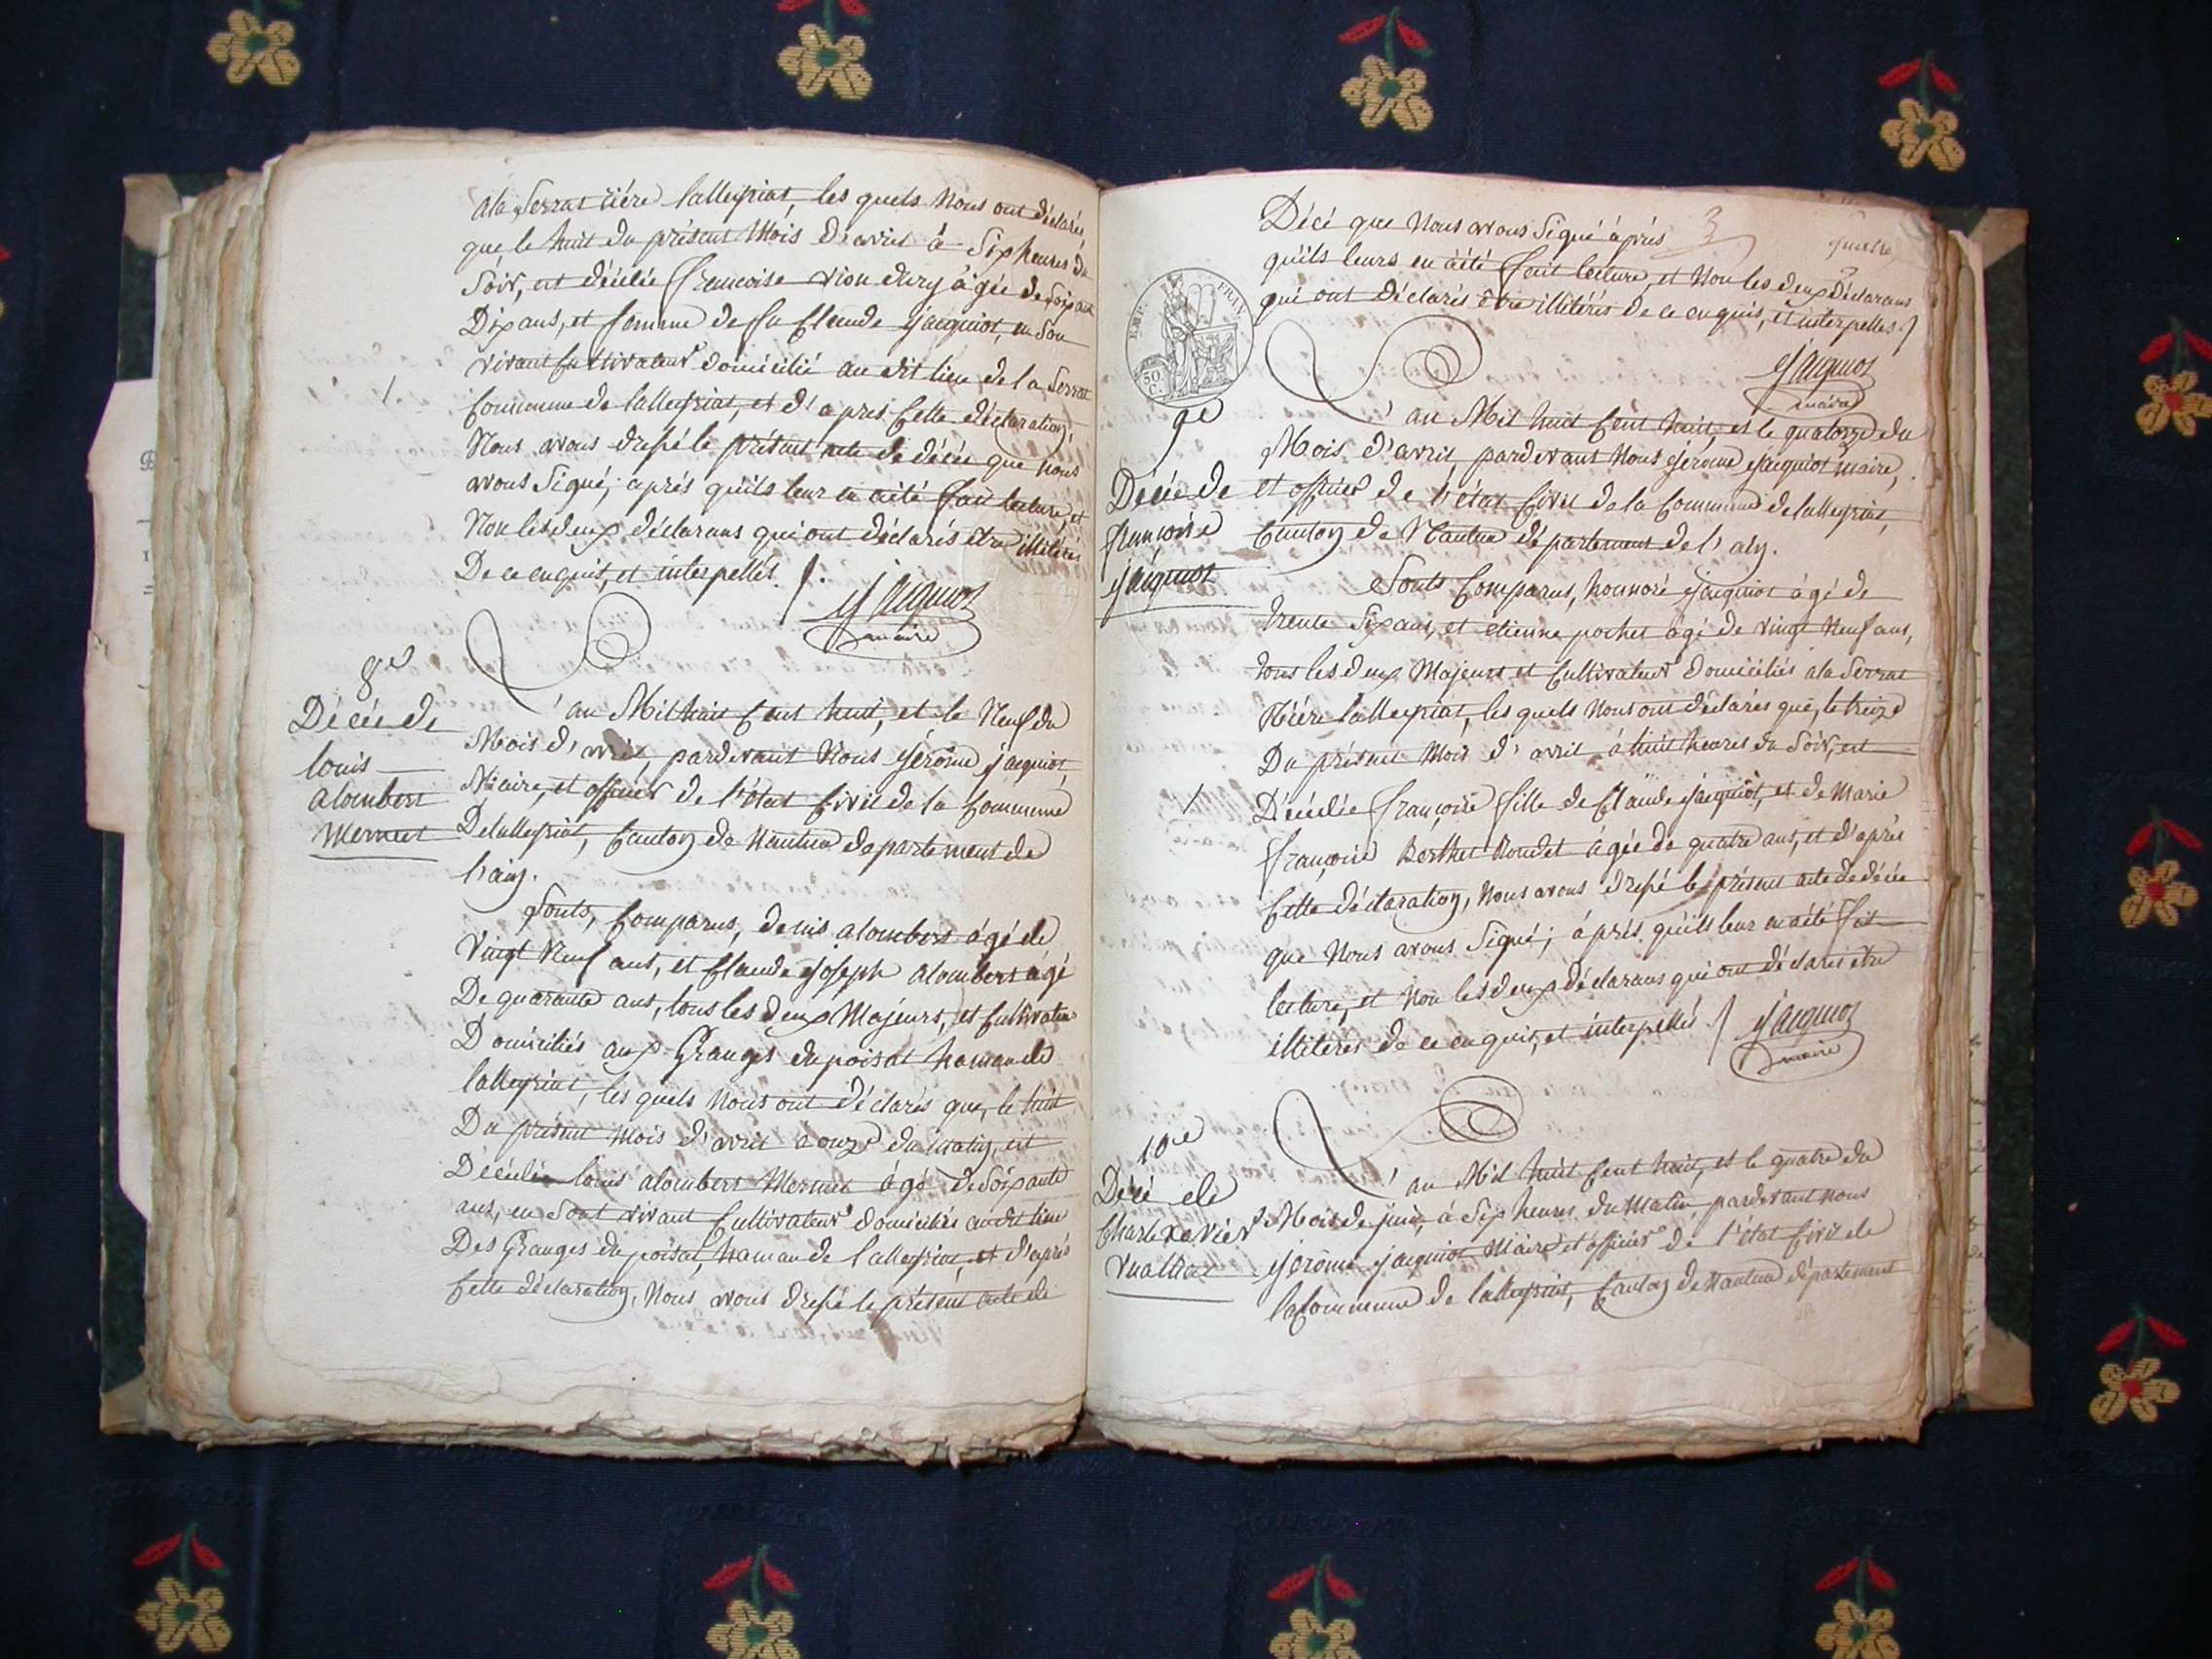 ala Serrat rière lalleyriat, les quels Nous ont déclarés
que, le huit du présent Mois d'avril à Six heures du
Soir, est décédée francoise vion dury âgée de Soixante
Dix ans, et femme de fu Claude Jacquiot, en Son
vivant Cultivateur domicilié au dit lieu de la Serrat
Commune de lalleyriat, et d'apres Cette déclaration,
Nous avons dressé le présent acte de décée que nous
avons Signé; aprés quils leur en aité fait lecture, et
Non les deux déclarans qui ont déclarés être illitérés
De ce enquis, et interpellés.
Jacquiot
maire
8e
Décée de
louis
alombert
Mermet
L'an Mil huit Cent huit, et le Neuf du
Mois d'avril, pardevant Nous Jérôme Jacquiot
Maire, et officier de l'état Civil de la Commune
Delalleyriat, Canton de Nantua departement de
l'ain.
Sonts, Comparus, denis alombert âgé de
Vingt Neuf ans, et Claude Joseph alombert âgé
De quarante ans, tous les deux Majeurs, et Cultivateur
Domiciliés aux Granges du poisat hamau de
lalleyriat, les quels Nous ont déclarés que, le huit
Du présent mois d'avril a onze du matin, est
Décédé louis alombert Mermet âgé de Soixante
ans, en Sont vivant Cultivateur domiciliés au dit lieu
Des Granges du poisat, hamau de lalleyriat, et d'aprés
Cette déclaration, Nous avons dressé le présent acte de
3
quatre
Décé que Nous avons Signé áprés
quils leurs en aété fait lecture, et Non les deux déclarans
qui ont déclarés être illitérés de ce enquis, et interpellés.
EMP. FRAN.
50
C.
Jacquiot
maire
9e
Décée de
françoise
Jacquiot
L'an Mil huit Cent huit, et le quatorze du
Mois d'avril, pardevant Nous Jérome Jacquiot maire,
et officier de l'état Civil de la Commune de lalleyriat,
Canton de Nantua département de l'ain.
Sonts Comparus, honnoré Jacquiot âgé de
trente Six ans, et etienne pochet âgé de vingt Neuf ans,
tous les deux Majeurs et Cultivateur domiciliés ala Serrat
Riére lalleyriat, les quels Nous ont déclarés que, le treize
Du présent Mois d'avril á huit heures du Soir, est
Décédée françoise fille de Claude Jacquiot, et de Marie
françoise Berthet Bondet âgée de quatre ans, et d'aprés
Cette déclaration, Nous avons dressé le présent acte de décée
que Nous avons Signé; áprés quils leur en aété fait
lecture, et Non les deux déclarans qui ont déclarés être
illitérés de ce enquis, et interpellés.
Jacquiot
maire
10e
Décé de
Charle xavier
Vuaillat
L'an Mil huit Cent huit, et le quatre du
Mois de juin, à Six heures du Matin pardevant nous
Jérome Jacquiot Maire et officier de l'état Civil de
la Commune de lalleyriat, Canton de Nantua département